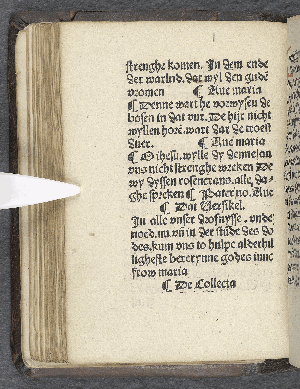 strenghe komen. In dem ende
der warlnd. dat wyl den gudē
vromen ¶ Aue maria
¶ Denne wart he vorwysen de
bosen in dat vur. De hijr nicht
wyllen horē. wart dar de troest
duer. ¶ Aue maria
¶ O ihesu. wylle dy demelan
vns nicht strenghe wreken De
wy dyssen rosencrans. alle da-
ghe spreken ¶ Pater no. Aue
¶ Dat Versikel.
In alle vnser drofnysse. vnde
noed. nu vn in der stūde des do
des. kum vns to hulpe alderhil
ligheste
frow maria
¶ De Collecta